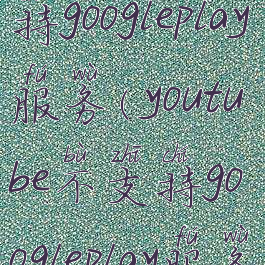 持googleplay
fú wù
服务(youtu
bù zhī chí
be不支持go
fú wù
ogleplay服务